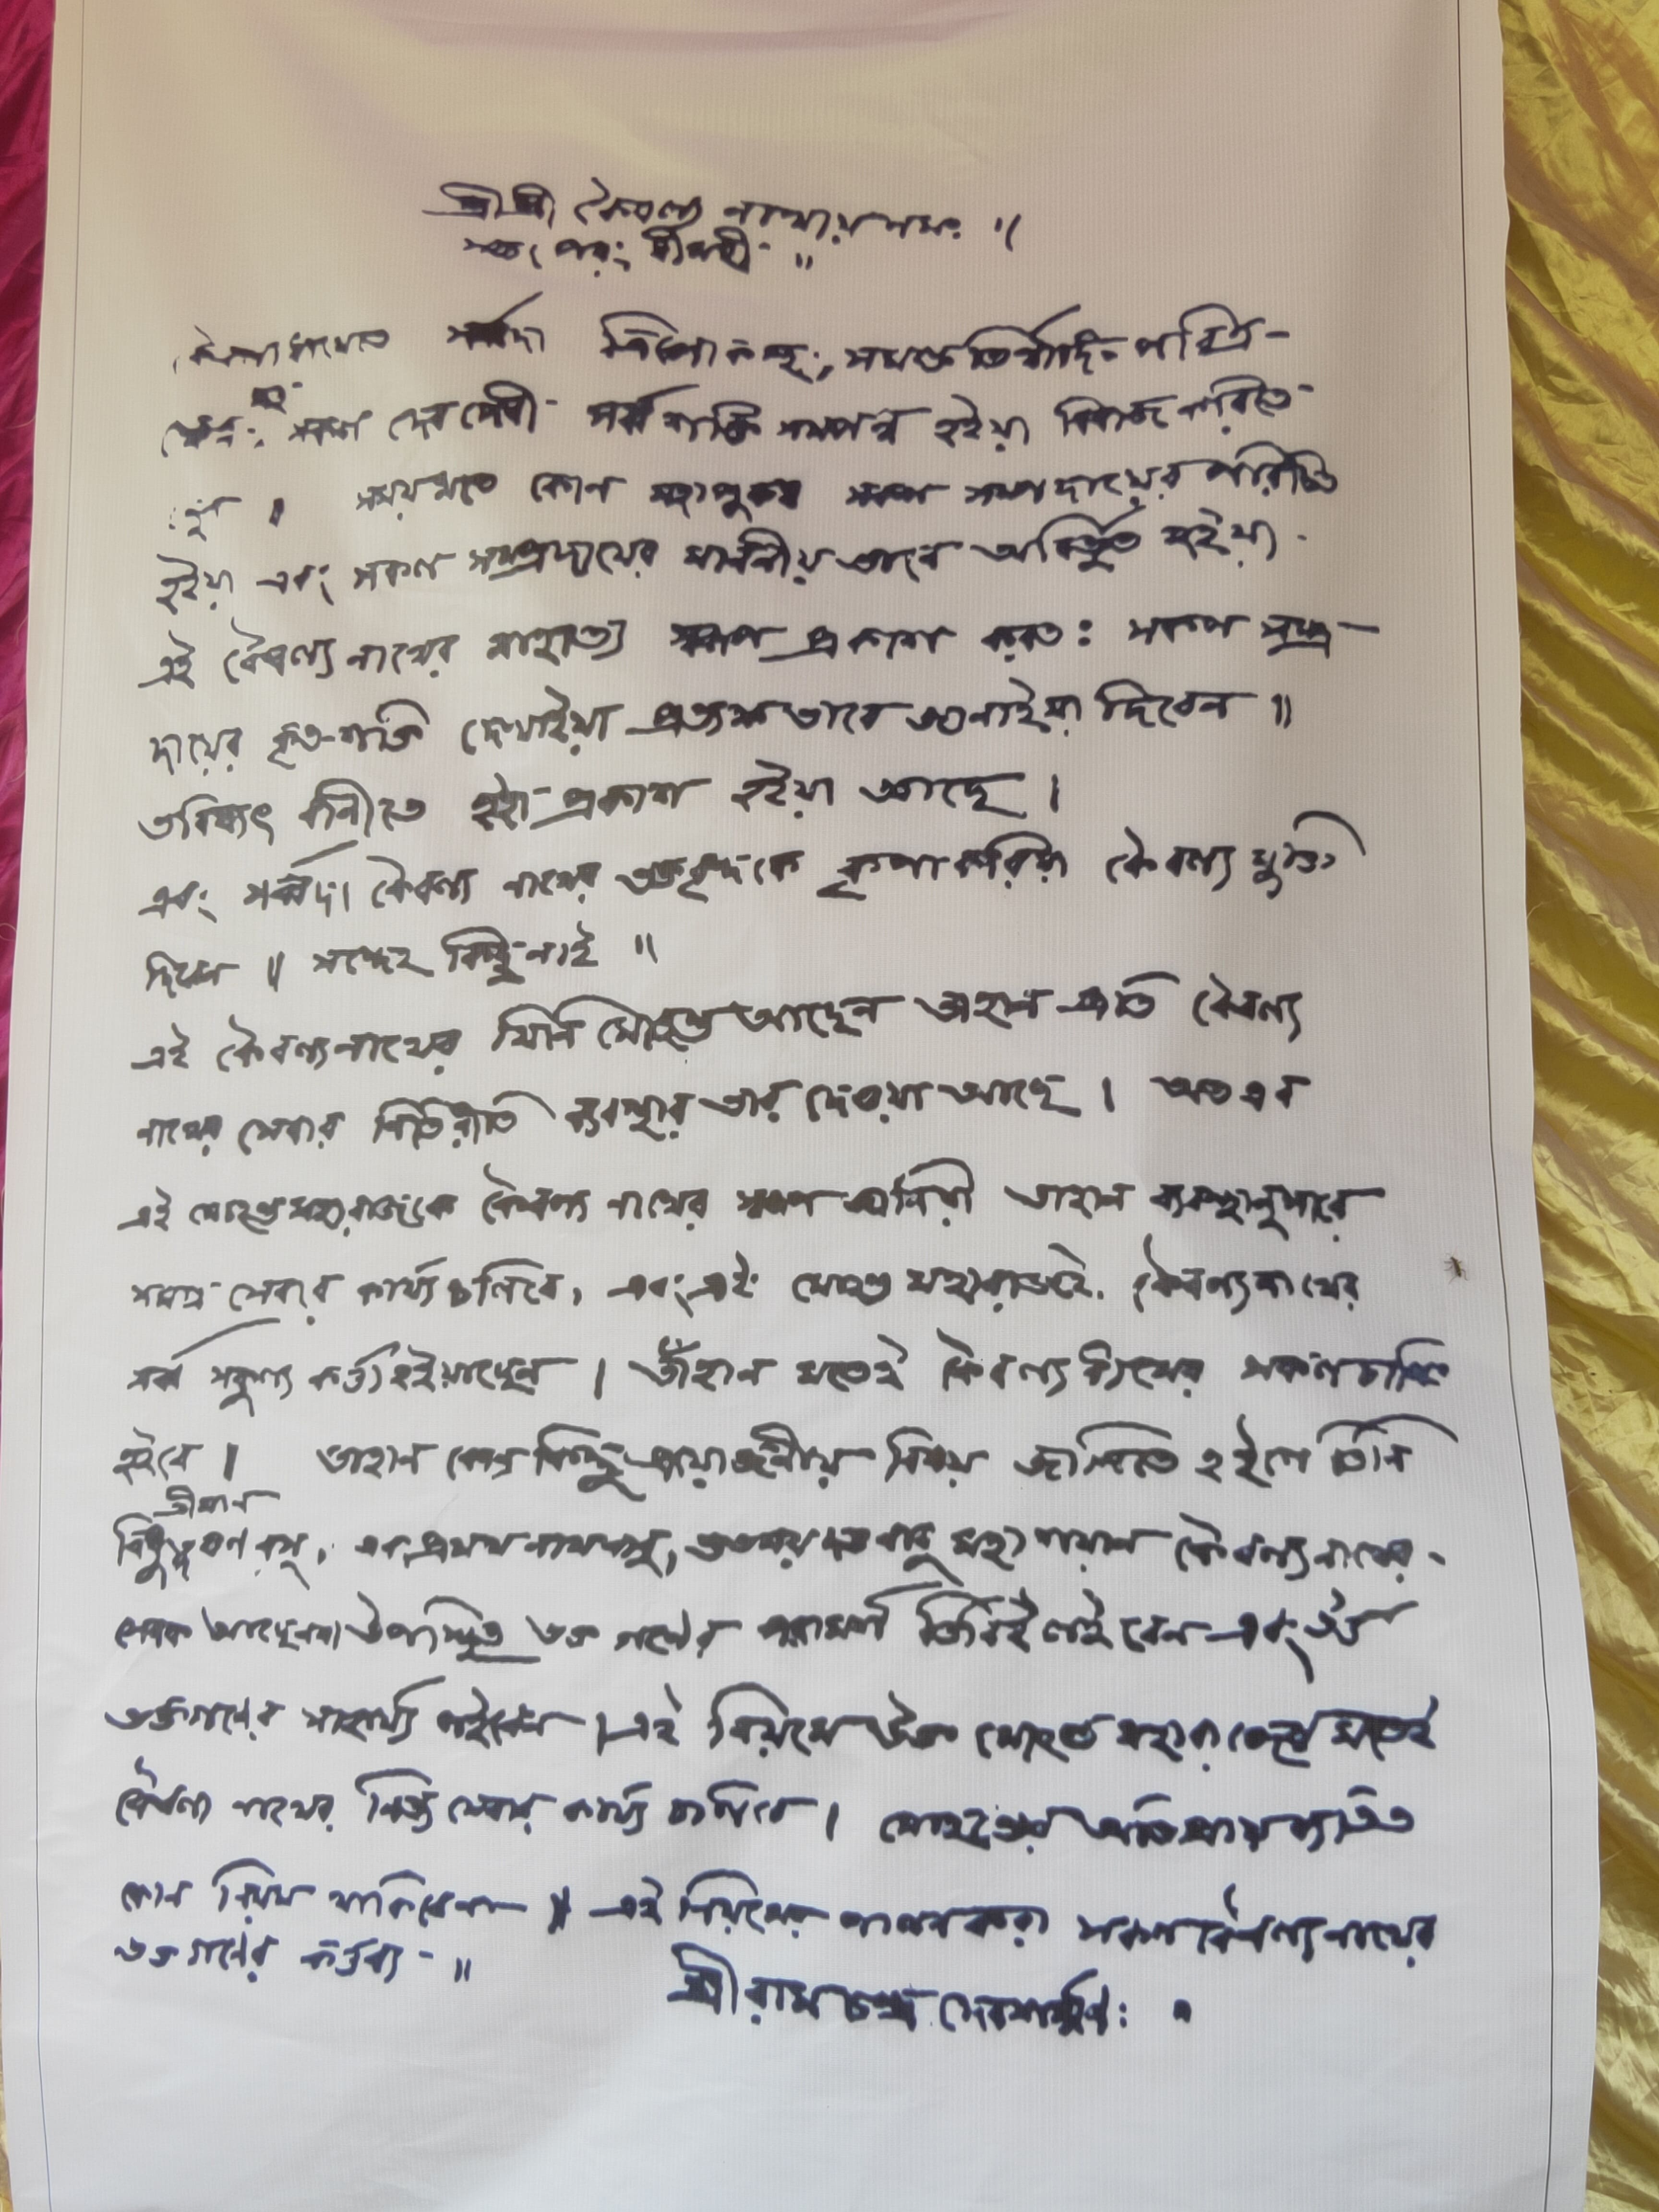 শ্রীশ্রী কৈবল্য নাথায় নমঃ ॥
সত্যং পরং ধীমহী ॥
সর্ব্বদা ত্রিলোকস্থ, সমস্ত তির্থাদি পবিত্র-
সকল দেব দেবী সর্ব্ব শক্তি সম্পন্ন হইয়া বিরাজ করিতে-
। সময়মতে কোন মহাপুরুষ সকল সম্প্রদায়ের পরিচিত
হইয়া এবং সকল সম্প্রদায়ের মাননীয় ভাবে আবির্ভূত হইয়া
এই কৈবল্য নাথের মাহাত্ম্য স্বরূপ প্রকাশ করতঃ সকল সম্প্র-
দায়ের কৃত শক্তি দেখাইয়া প্রত্যক্ষ ভাবে জানাইয়া দিবেন ॥
ভবিষ্যৎ বানীতে ইহা প্রকাশ হইয়া আছে ।
এবং সর্ব্বদা কৈবল্য নাথের ভক্তবৃন্দকে কৃপা করিয়া কৈবল্য মুক্তি
দিবেন ॥ সন্দেহ কিছু নাই ॥
এই কৈবল্যনাথের যিনি মোহন্ত আছেন তাহান প্রতি কৈবল্য
নাথের সেবার বিতিনীতি ব্যবস্থার ভার দেওয়া আছে । অতএব
এই মোহন্ত মহারাজকে কৈবল্য নাথের স্বরূপ জানিয়া তাহান ব্যবস্থানুসারে
সমস্ত সেবার কার্য্য চলিবে, এবং এই মোহন্ত মহারাজই কৈবল্যনাথের
সর্ব্ব কর্ত্তা হইয়াছেন । তাঁহান মতেই কৈবল্য নাথের সকল চালিত
হইবে । তাহান কোন কিছু প্রয়োজনীয় বিষয় জানিতে হইলে তিনি
শ্রীমান
বিধুভূষণ বসু, এবং প্রমথ নাথ বসু, শুভময় দত্ত বাবু মহাশয়ান কৈবল্যনাথের
সেবক আছেন উপস্থিত ভক্ত গণের পরামর্শ তিনিই লইবেন এবং ঐ
ভক্তগণের সাহার্য্য লইবেন । এই নিয়মে উক্ত মোহন্ত মহারাজের মতেই
কৈবল্য নাথের নিত্য সেবার কার্য্য চলিবে । মোহন্তের অভিপ্রায় ব্যতিত
কোন নিয়ম থাকিবেনা ॥ এই নিয়মের পালন করা সকল কৈবল্যনাথের
ভক্ত গণের কর্ত্তব্য ॥
শ্রীরামচন্দ্র দেবশর্ম্মণঃ ।